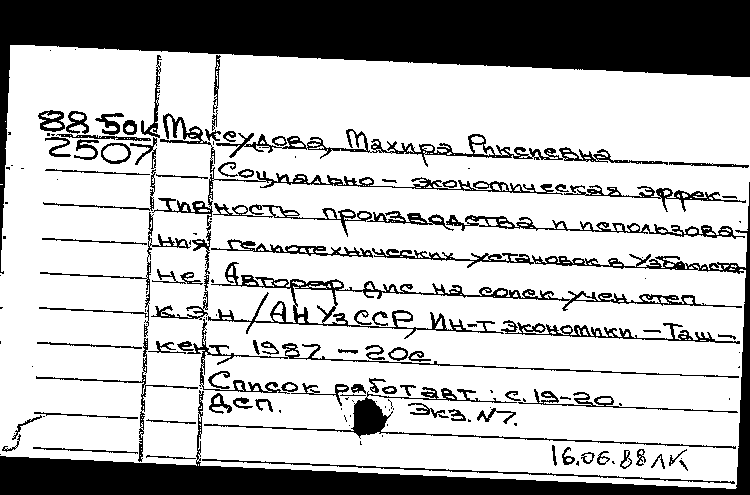 88-5ок Максудова, Махира Риксиевна
2507
Социально-экономическая эффек-
тивность производства и использова-
ния гелиотехнических установок в Узбекиста-
не. Автореф. дис на соиск учен. степ.
к.э.н. /АН УзССР, Ин-т экономики. - Таш-
кент, 1987. - 20с.
Список работ авт.: с. 19-20.
Дсп. Экз. N7.
16.06.88 ЛК